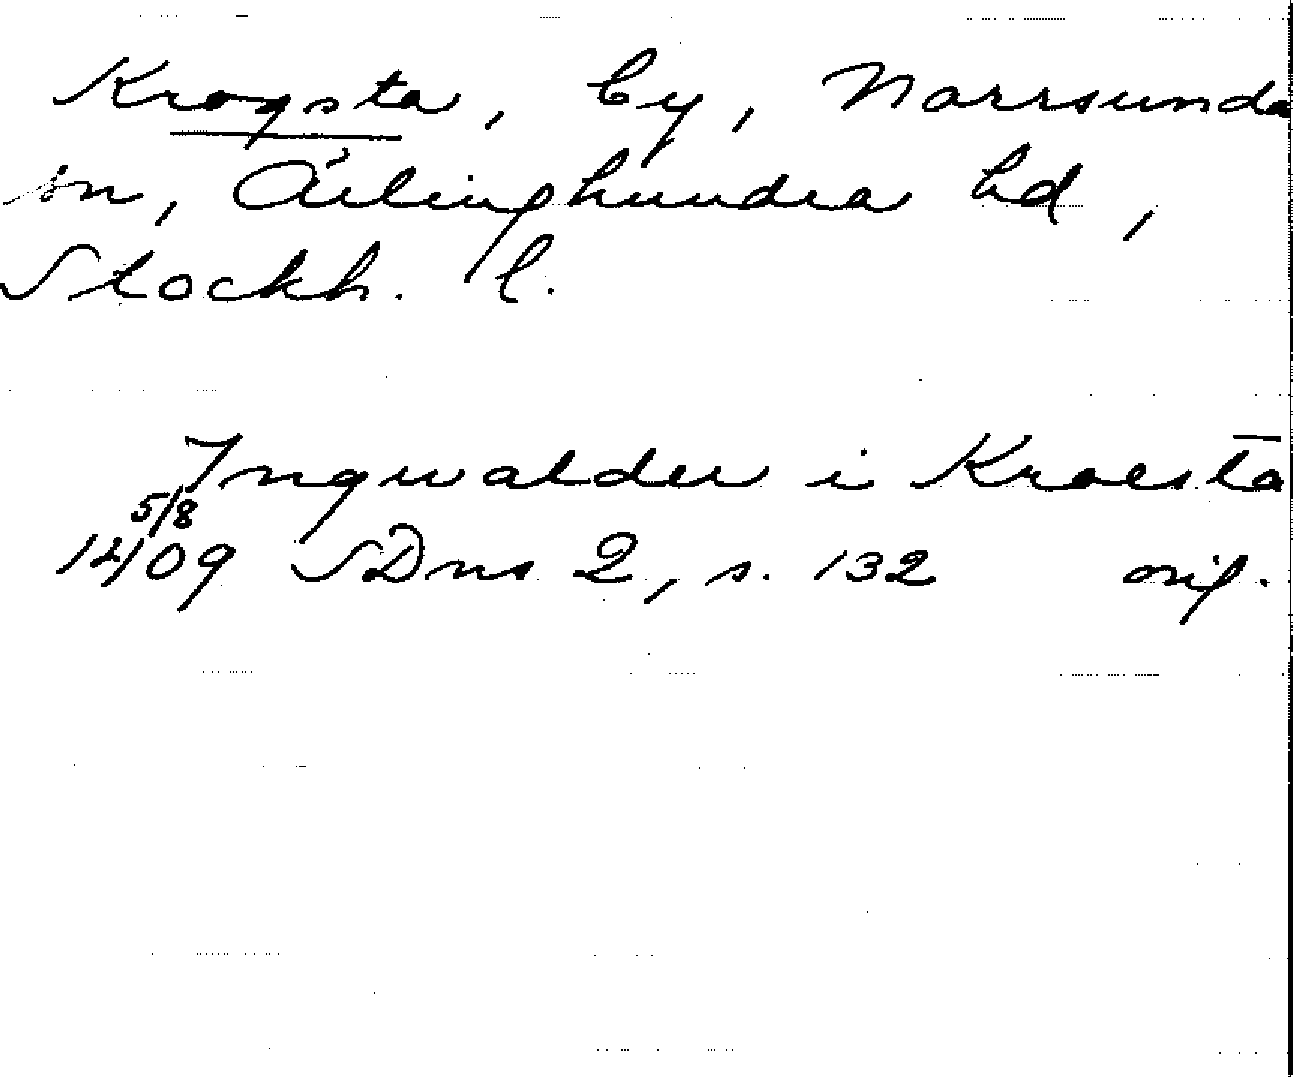 Krogsta, by, Norrsunda
sn, Ärlinghundra hd,
Stockh. l.
Jngwalder i Kroestā
5/8
1409 SDns 2, s. 132 orig.